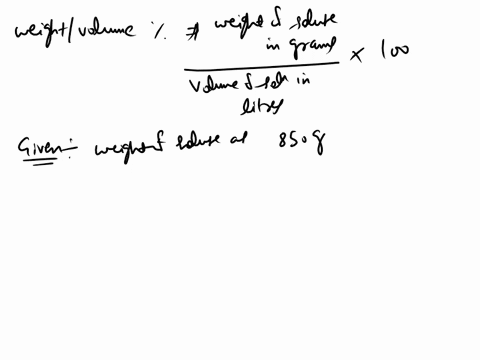 weight/volume % ⇒ weight of solute
in grams
× 100
Volume of soln in
litres
Given:- weight of solute as 850g